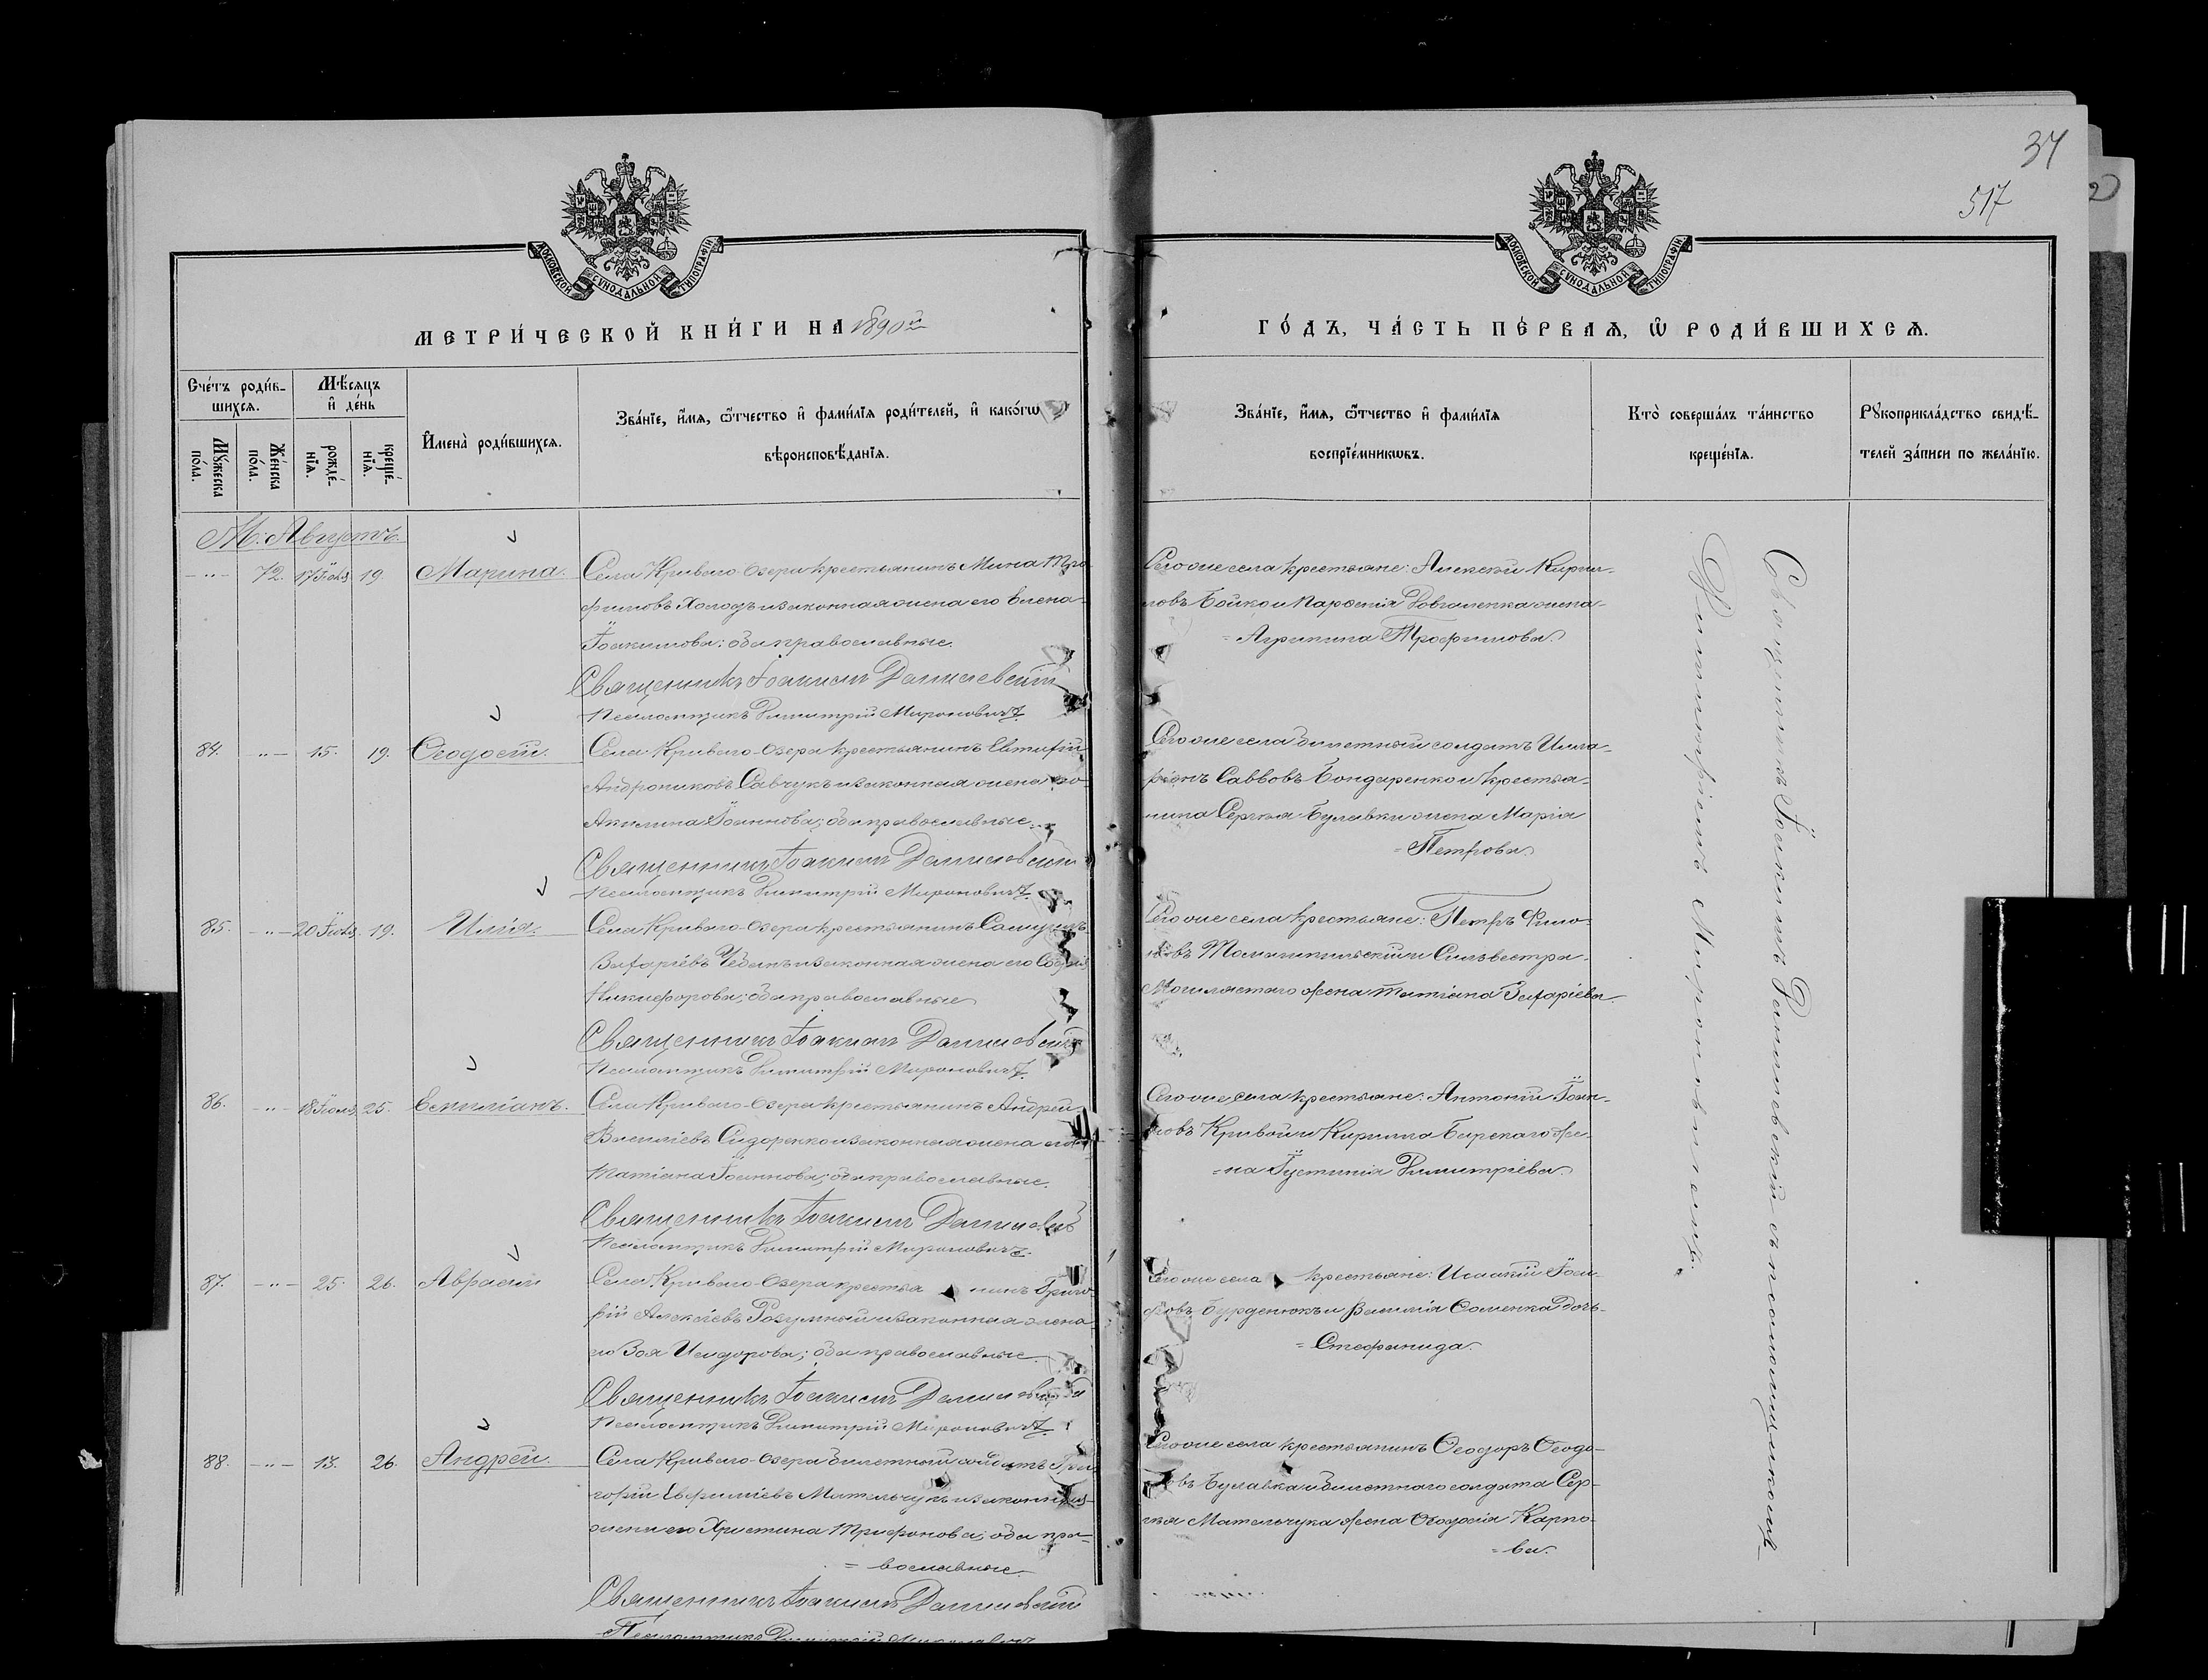 37
517
МОСКОВСКОЙ СѴНОДАЛЬНОЙ ТИПОГРАФІИ
МОСКОВСКОЙ СѴНОДАЛЬНОЙ ТИПОГРАФІИ
МЕТРИ́ЧЕСКОЙ КНИ́ГИ НА 1890й
ГО́ДЪ, ЧА́СТЬ ПЕ́РВАѦ, Ѿ РОДИ́ВШИХСѦ.
Сче́тъ роди́в-
шихсѧ.
Мѣ́сѧцъ
и҆ де́нь
Мꙋ́жеска по́ла.
Же́нска по́ла.
рожде́-
нїѧ.
креще́-
нїѧ.
И҆мена̀ роди́вшихсѧ.
Зва́нїе, и҆́мѧ, ѻ҆́тчество и҆ фами́лїѧ роди́телей, и҆ како́гѡ
вѣроисповѣ́данїѧ.
Зва́нїе, и҆́мѧ, ѻ҆́тчество и҆ фами́лїѧ
воспрїе́мникѡвъ.
Кто̀ соверша́лъ та́инство
креще́нїѧ.
Рꙋкоприкла́дство свидѣ́-
телей за́писи по жела́нїю.
М. Августъ.
72. 17 Іюля 19. Марина.
Села Криваго-Озера крестьянинъ Мина Тро-
фимовъ Холодъ и законная жена его Елена
Іоакимова; оба православные.
Священникъ Іоакимъ Данилевскій
Псаломщикъ Димитрій Мироновичъ
Сего же села крестьяне: Алексѣй Кирил-
ловъ Бойко и Парѳенія Довгаленка жена
Агрипина Трофимова.
84. 15. 19. Ѳеодосій.
Села Криваго-Озера крестьянинъ Евтифій
Андрониковъ Савчукъ и законная жена его
Акилина Іоаннова; оба православные.
Священникъ Іоакимъ Данилевскій
Псаломщикъ Димитрій Мироновичъ
Сего же села билетный солдатъ Илла-
ріонъ Саввовъ Бондаренко и крестья-
нина Сергѣя Булавки жена Марія
Петрова.
85. 20 Іюля 19. Илія.
Села Криваго-Озера крестьянинъ Самуилъ
Захаріевъ Чебанъ и законная жена его Софія
Никифорова; оба православные
Священникъ Іоакимъ Данилевскій
Псаломщикъ Димитрій Мироновичъ
Сего же села крестьяне: Петръ Фили-
повъ и Сильвестра
Могилястаго жена Татіана Захаріева
86. 18 Іюля 25. Емиліанъ.
Села Криваго-Озера крестьянинъ Андрей
Василіевъ Сидоренко и законная жена его
Татіана Іоаннова; оба православные.
Священникъ Іоакимъ Данилевскій
Псаломщикъ Димитрій Мироновичъ
Сего же села крестьяне: Антоній Іоан-
новъ Кривой и Кирилла Барскаго же-
на Іустинія Димитріева.
87. 25. 26.
Села Криваго-Озера крестьянинъ Григо-
рій Алексѣевъ Розумный и законная жена
его Зоя Исидорова; оба православные.
Священникъ Іоакимъ Данилевскій
Псаломщикъ Димитрій Мироновичъ
Сего же села крестьяне: Исаакій Іоси-
фовъ Бурденюкъ и Василія Соменка дочь
Стефанида.
88. 13. 26. Андрей.
Села Криваго-Озера билетный солдатъ Гри-
горій Евфиміевъ Мательчукъ и законная
жена его Христина Трифонова; оба пра-
вославные.
Священникъ Іоакимъ Данилевскій
Псаломщикъ Димитрій Мироновичъ
Сего же села крестьянинъ Ѳеодоръ Ѳеодо-
ровъ Булавка и билетнаго солдата Сер-
гѣя Мательчука жена Ѳеодосія Карпо-
ва.
Священникъ Іоакимъ Данилевскій съ псаломщикомъ
Димитріемъ Мироновичемъ.